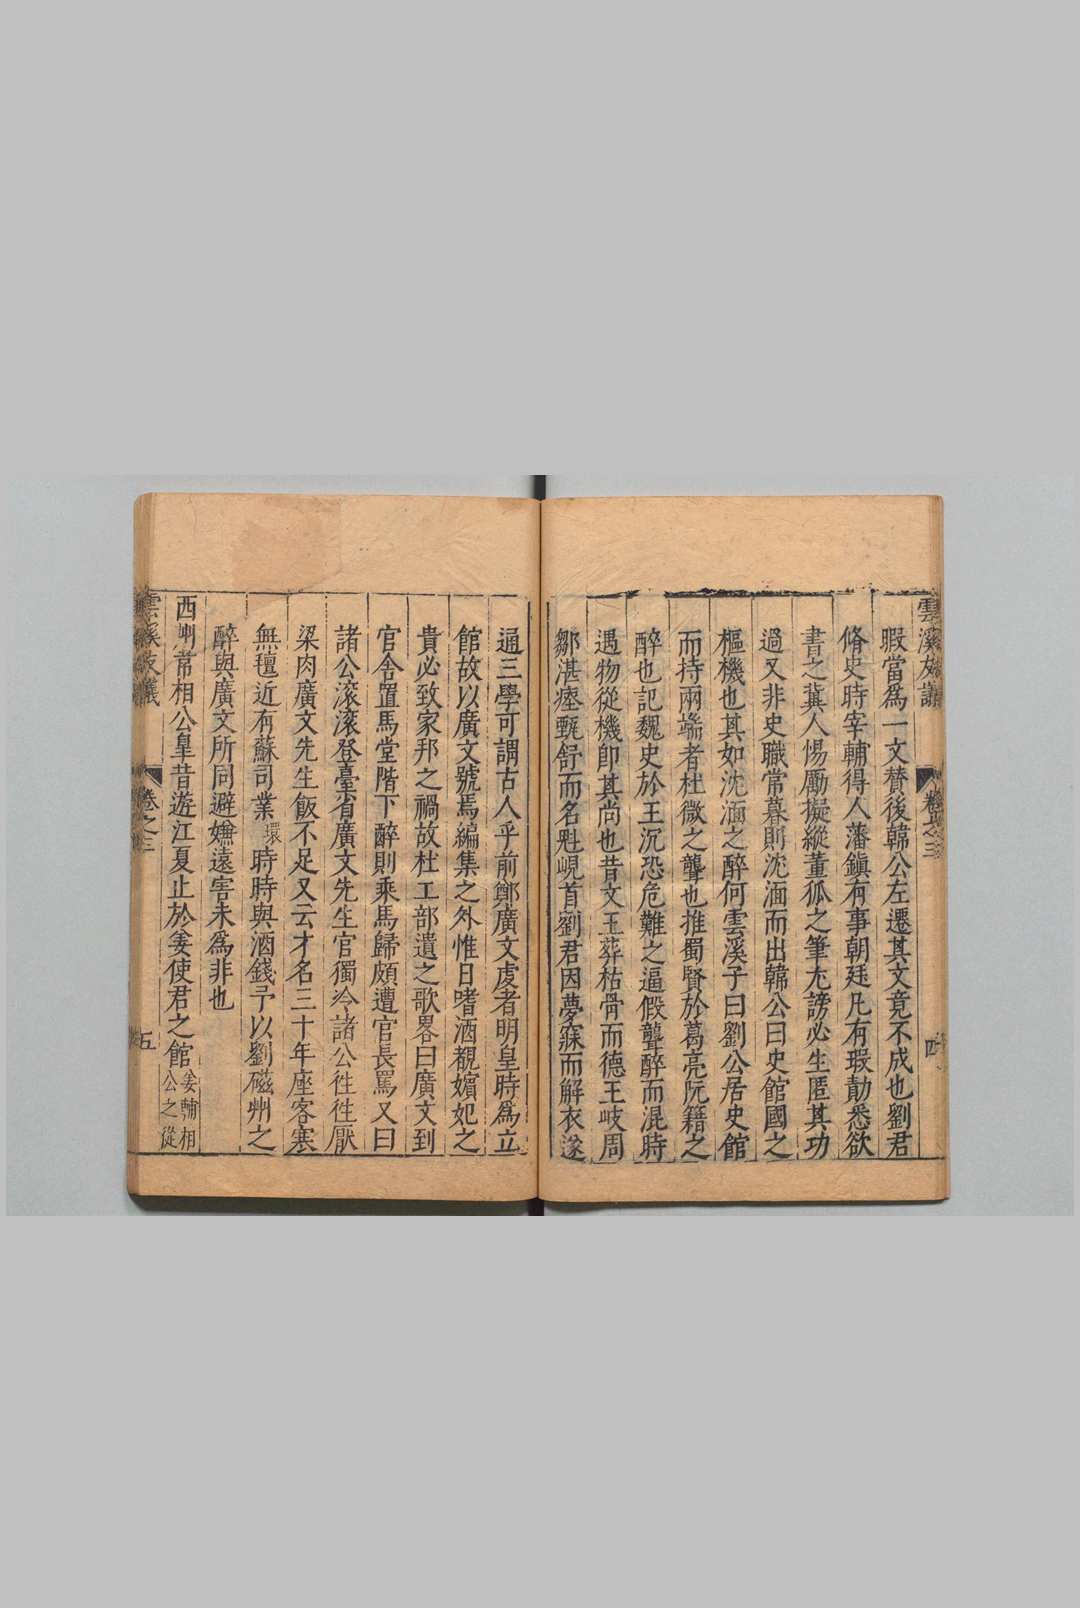 雲溪友議
卷之三
四
暇當爲一文賛後韓公左遷其文竟不成也劉君
脩史時宰輔得人藩鎭有事朝廷凡有瑕勣悉欲
書之冀人惕勵擬縱董狐之筆尢謗必生匿其功
過又非史職常暮則沈湎而出韓公曰史館國之
樞機也其如沈湎之醉何雲溪子曰劉公居史館
而持兩端者杜微之聾也推蜀賢於葛亮阮籍之
醉也記魏史於王沉恐危難之逼假聾醉而混時
遇物從機卽其尚也昔文王葬枯骨而德王岐周
鄒湛瘞甄舒而名甦峴首劉君因夢寐而解衣遂
通三學可謂古人乎前鄭廣文虔者明皇時爲立
館故以廣文號焉編集之外惟日嗜酒覩嬪妃之
貴必致家邦之禍故杜工部遺之歌畧曰廣文到
官舍置馬堂階下醉則乘馬歸頗遭官長罵又曰
諸公滚滚登臺省廣文先生官獨冷諸公徃徃厭
梁肉廣文先生飯不足又云才名三十年座客寒
無氊近有蘇司業環時時與酒錢予以劉磁州之
醉與廣文所同避嫌遠害未爲非也
西州常相公皐昔遊江夏止於姜使君之館姜輔相公之從
雲溪友議
卷之三
五